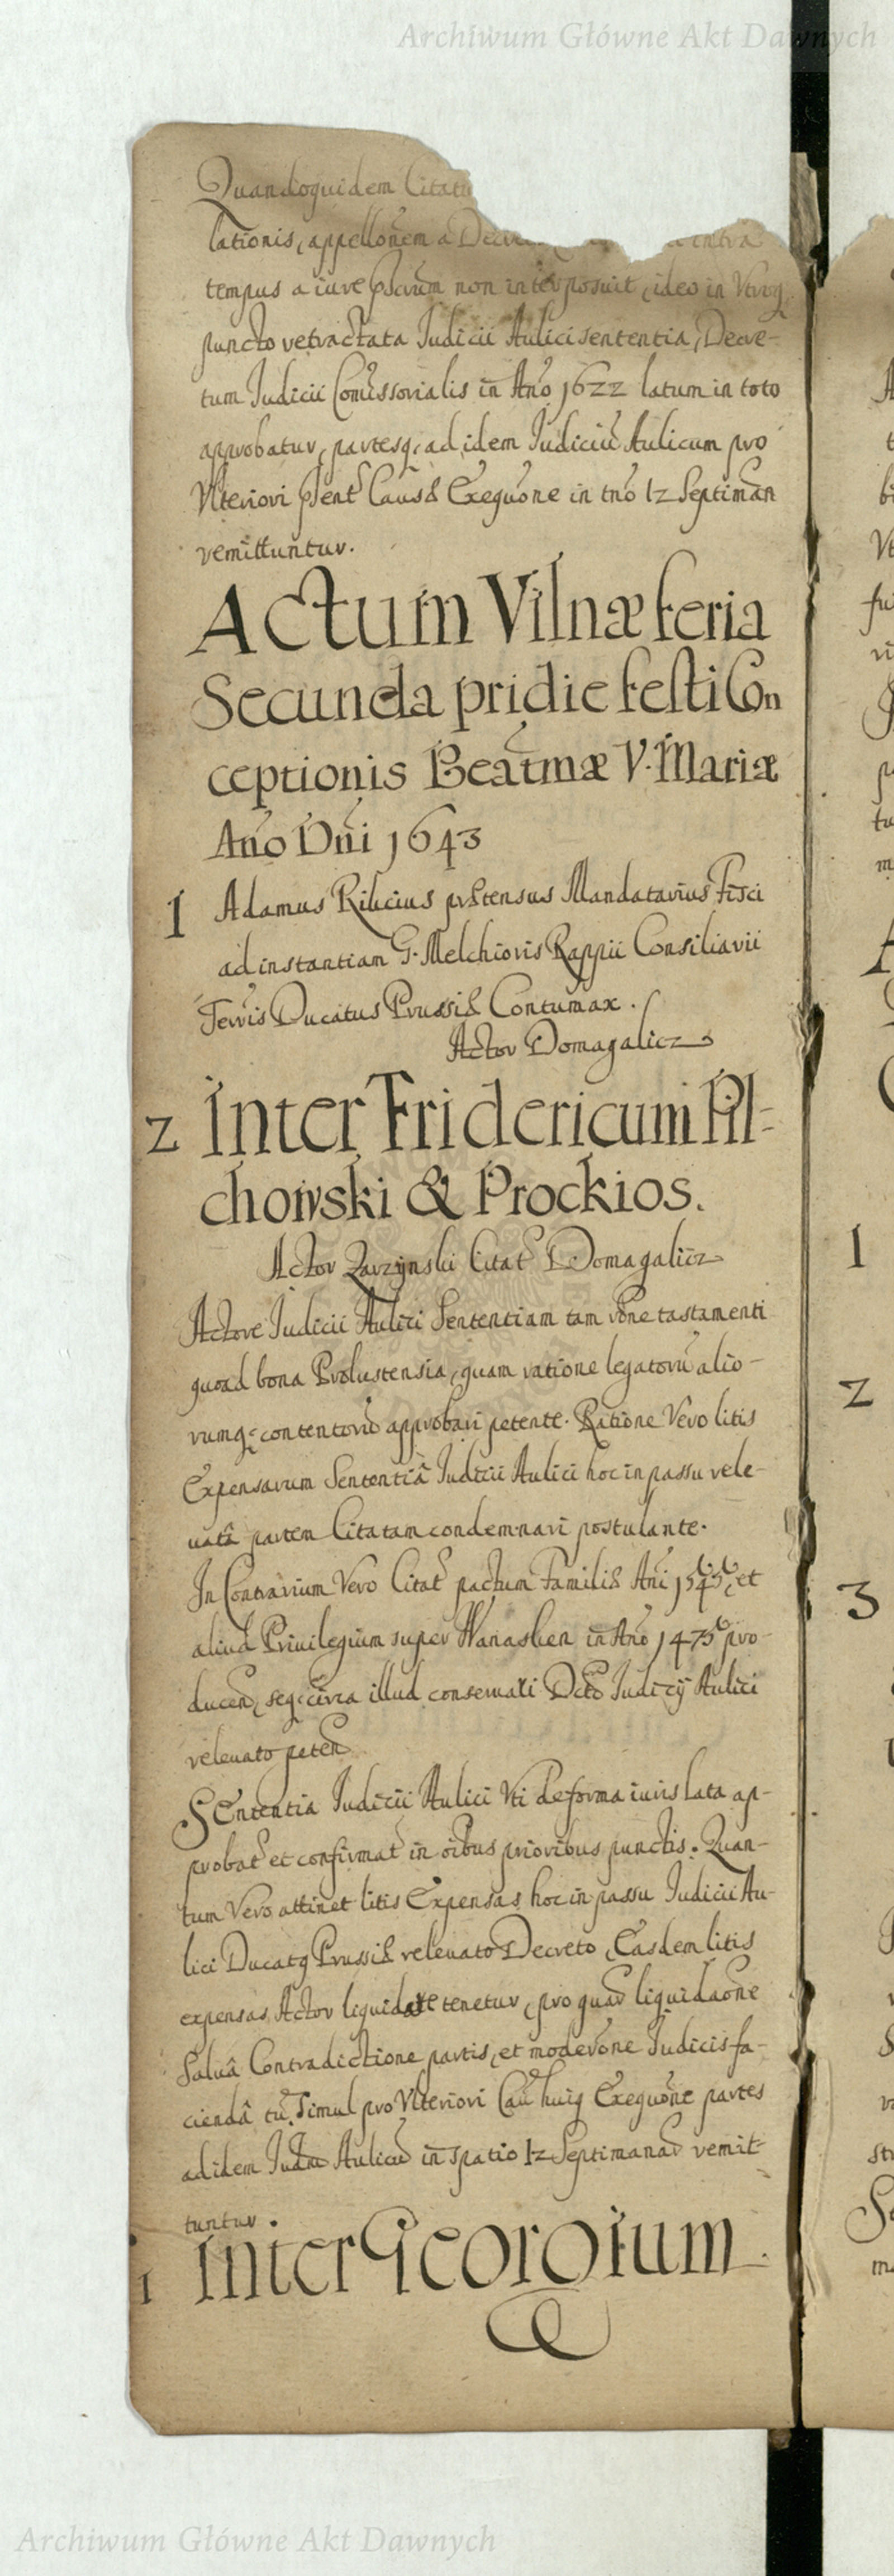 Archiwum Główne Akt Dawnych
Quandoquidem Citatu
lationis, appellonem a Decre intra
tempus a iure pscrum non interposuit, ideo in Vtroq
puncto retractata Iudicii Aulici sententia, Decre-
tum Iudicii Comissorialis in Ano 1622 latum in toto
approbatur, partesq, ad idem Iudiciu Aulicum pro
Vlteriori psent Causæ Exequone in tno 12 Septiman
remittuntur.
Actum Vilnæ feria
Secunda pridie festi Con
ceptionis Beatmæ V. Mariæ
Ano Dni 1643
1 Adamus Rilicius prætensus Mandatarius Fisci
ad instantiam G. Melchioris Rappii Consiliarii
Terris Ducatus Prussiæ Contumax.
Actor Domagalicz
2 Inter Fridericum Pil-
chowski & Prockios.
Actor Zarzynski Citat Domagalicz
Actore Iudicii Aulici Sententiam tam rone tastamenti
quoad bona Prolustensia, quam ratione legatoru alio-
rumq contentoru approbari petente. Ratione Vero litis
Expensarum Sententiâ Iudicii Aulici hoc in passu rele-
uatâ partem Citatam condemnari postulante.
In Contrarium Vero Citat pactum Familiæ Ani 1545, et
aliud Priuilegium super Wanaslien in Ano 1475 pro-
ducen, seq circa illud conseruari Dcto Iudicij Aulici
releuato peten
Sententia Iudicii Aulici Vti de forma iuris lata ap-
probat et confirmat in oibus prioribus punctis. Quan-
tum Vero attinet litis Expensas, hoc in passu Iudicii Au-
lici Ducatq Prussiæ releuato Decreto, Easdem litis
expensas Actor liquidare tenetur, pro qua liquidaone
Saluâ Contradictione partis, et moderone Iudicis fa-
ciendâ tu, Simul pro Vlteriori Cau huiq Exequone partes
ad idem Iudm Aulicu in spatio 12 Septimanar remit-
tuntur.
1 Inter Georgium
Archiwum Główne Akt Dawnych